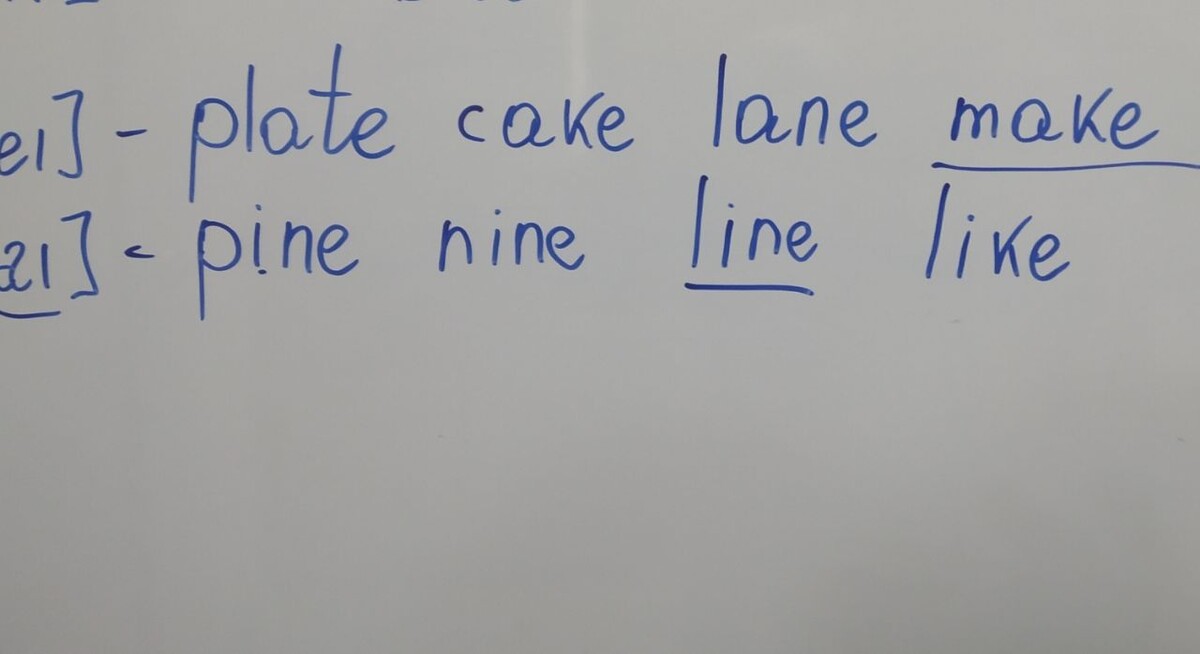 eı] - plate cake lane make
aı] - pine nine line like